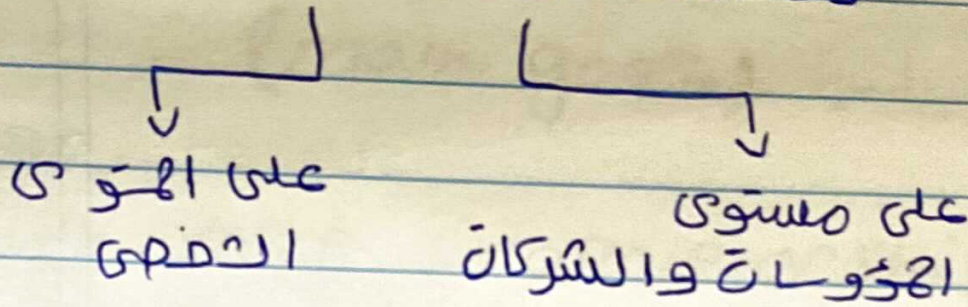 على مستوى
المؤسسات والشركات
على المستوى
الشخصى